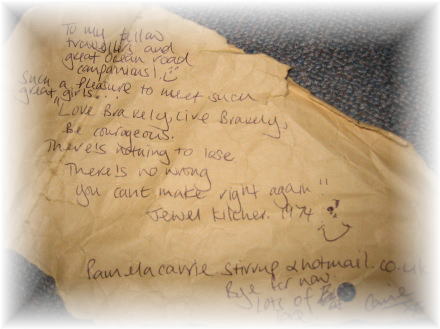 To my fellow
travellers and
great ocean road
companions!
Such a pleasure to meet such
great girls...
"Love Bravely, Live Bravely,
Be courageous.
There's nothing to lose
There's no wrong
you cant make right again"
Jewel Kilcher. 1974
Pamelacarrie stirrup @hotmail.co.uk
Bye for now
lots of
love Carrie